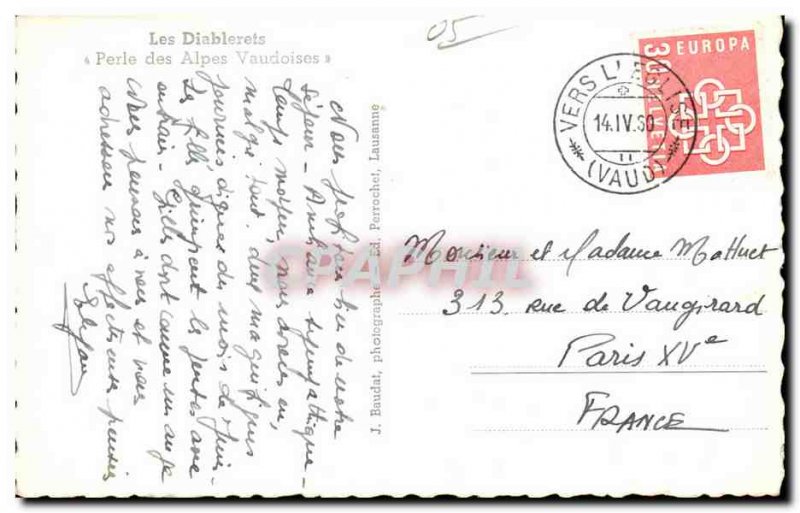 Les Diablerets
« Perle des Alpes Vaudoises »
05
EUROPA
30
HELVETIA
VERS L'EGLISE
14.IV.60
11
(VAUD)
Nous profitons bien de notre
séjour - Ambiance sympathique -
temps moyen, nous avons eu,
malgré tout, deux magnifiques
journées, dignes du mois de juin -
Les filles grimpent les pentes avec
entrain - Gilles dort comme un ange
Nous pensons à vous et vous
adressons nos affectueuses pensées
J. Baudat, photographe - Ed. Perrochet, Lausanne
CPAPHIL
Monsieur et Madame Mathuet
313 rue de Vaugirard
Paris XVe
FRANCE